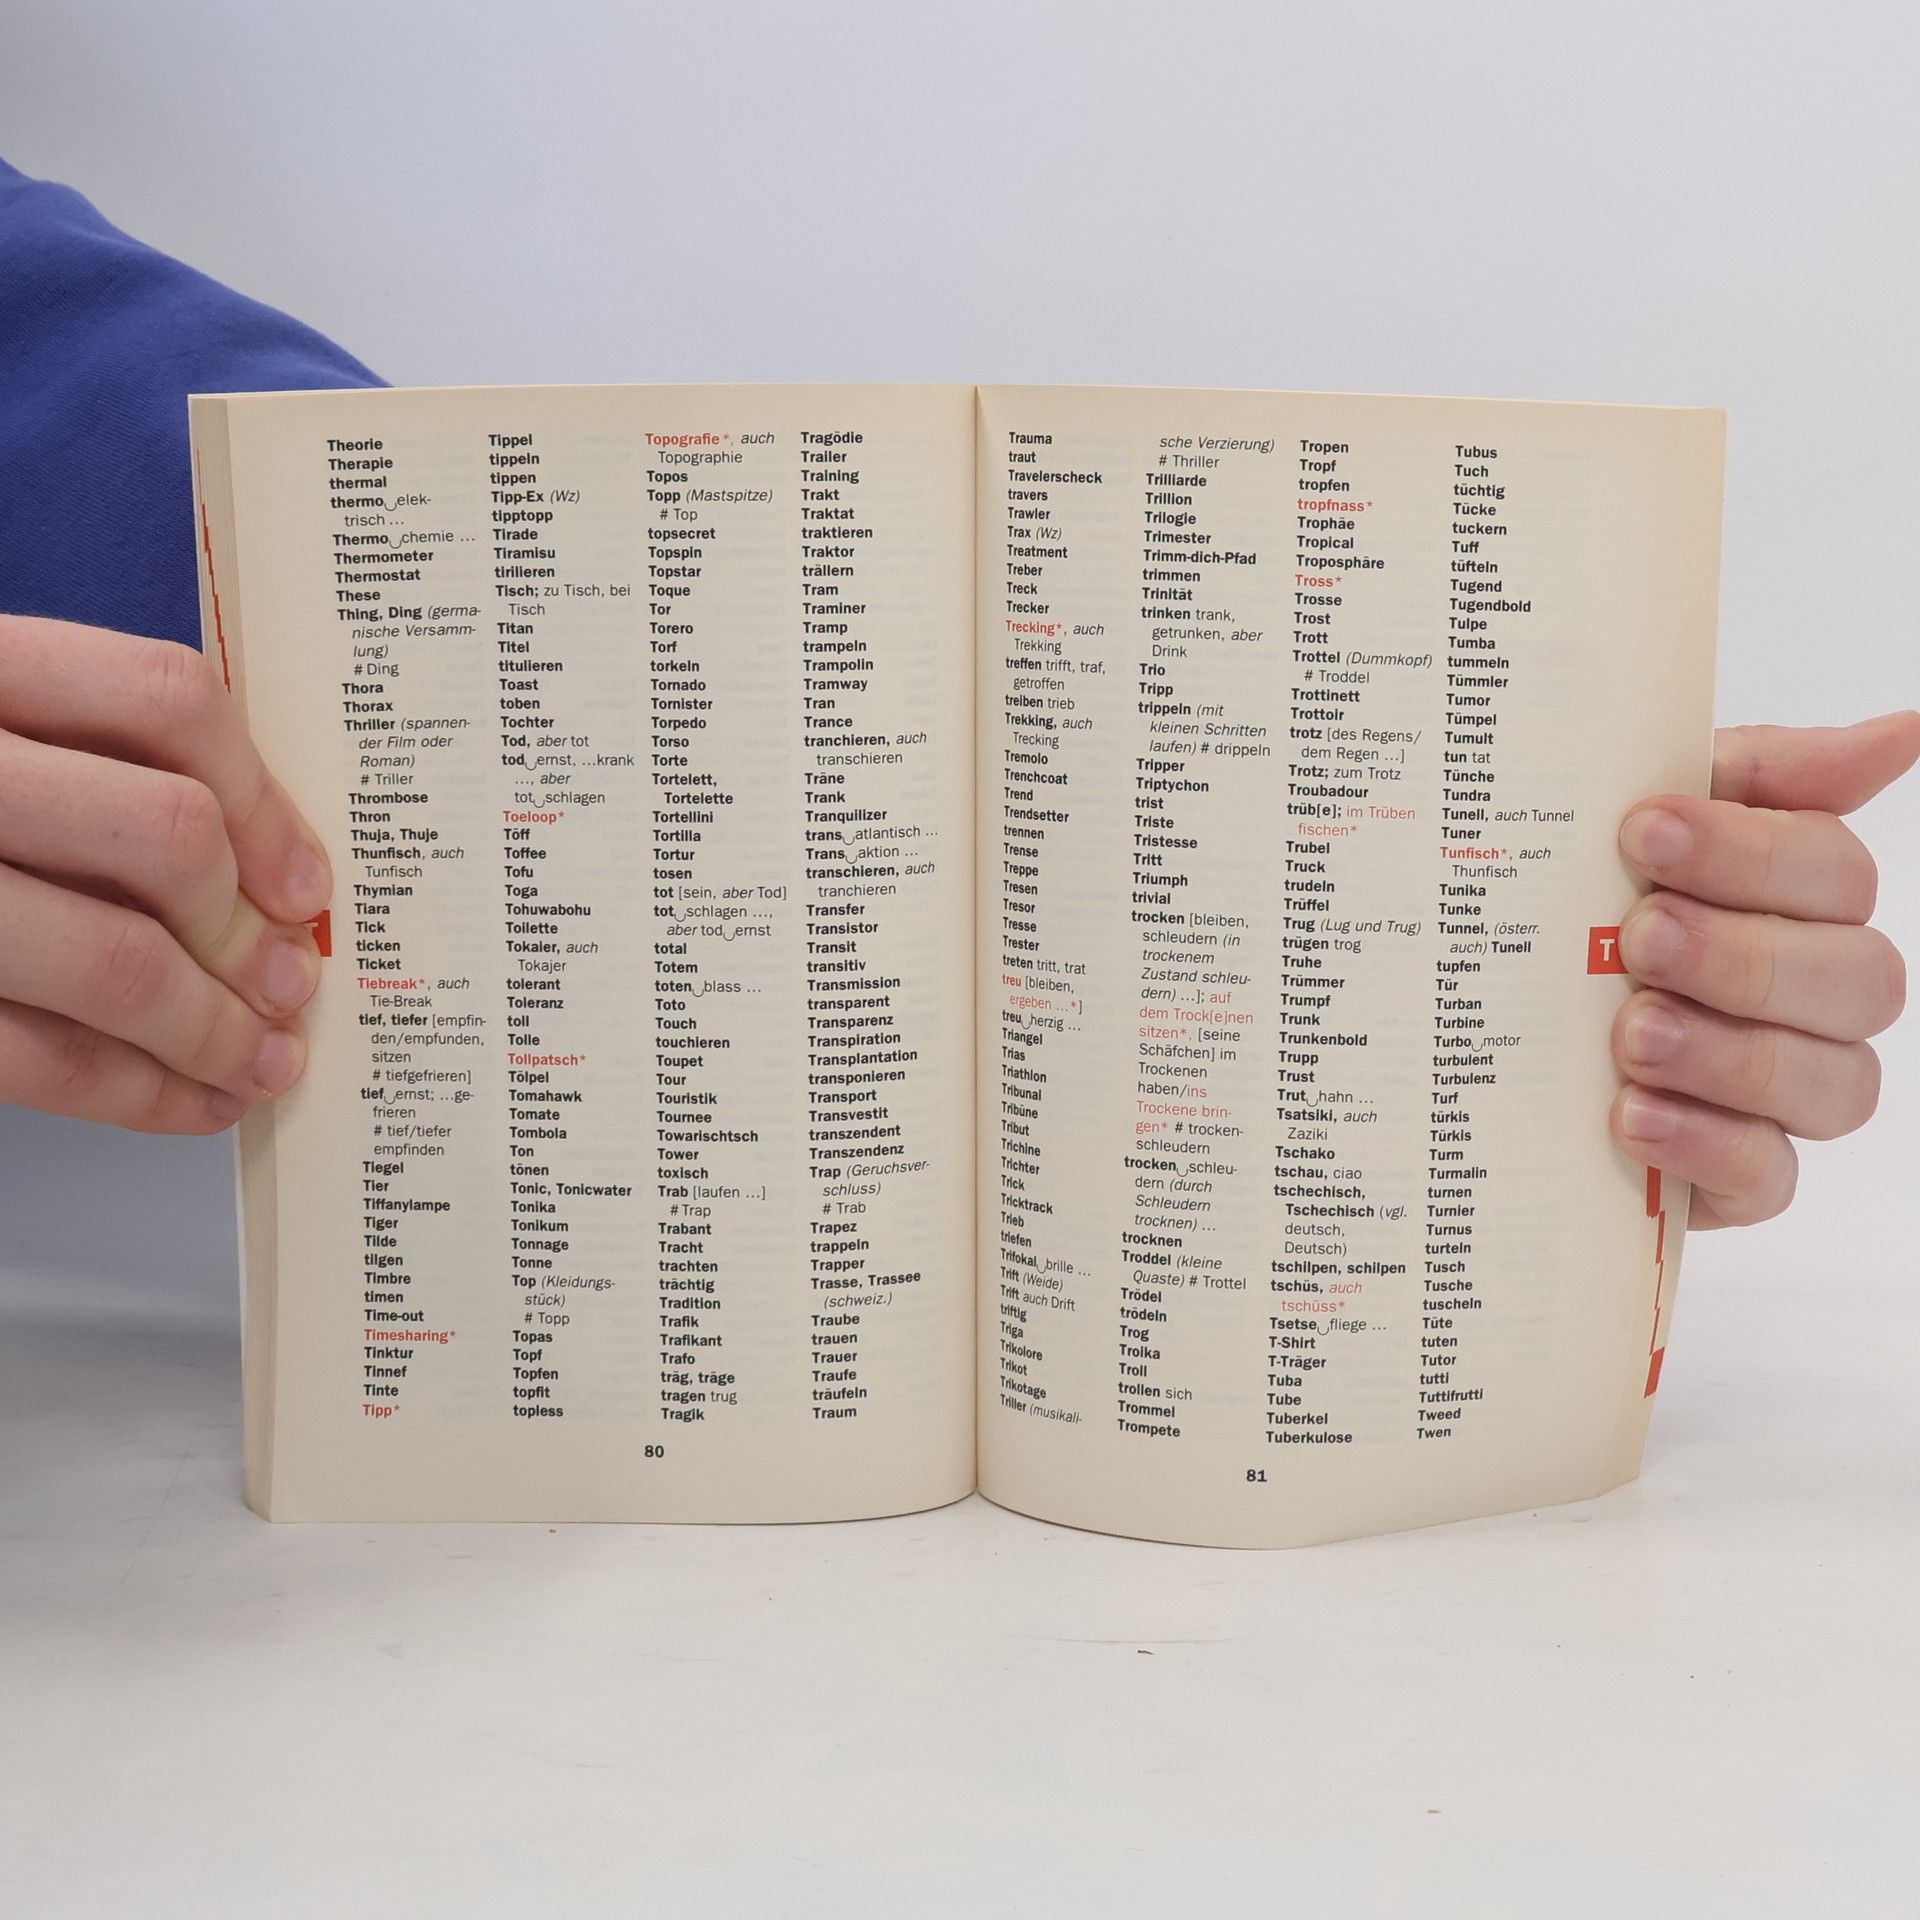 Theorie
Therapie
thermal
thermo‿elek-
trisch ...
Thermo‿chemie ...
Thermometer
Thermostat
These
Thing, Ding (germa-
nische Versamm-
lung)
# Ding
Thora
Thorax
Thriller (spannen-
der Film oder
Roman)
# Triller
Thrombose
Thron
Thuja, Thuje
Thunfisch, auch
Tunfisch
Thymian
Tiara
Tick
ticken
Ticket
Tiebreak*, auch
Tie-Break
tief, tiefer [empfin-
den/empfunden,
sitzen
# tiefgefrieren]
tief‿ernst; ...ge-
frieren
# tief/tiefer
empfinden
Tiegel
Tier
Tiffanylampe
Tiger
Tilde
tilgen
Timbre
timen
Time-out
Timesharing*
Tinktur
Tinnef
Tinte
Tipp*
Tippel
tippeln
tippen
Tipp-Ex (Wz)
tipptopp
Tirade
Tiramisu
tirilieren
Tisch; zu Tisch, bei
Tisch
Titan
Titel
titulieren
Toast
toben
Tochter
Tod, aber tot
tod‿ernst, ...krank
..., aber
tot‿schlagen
Toeloop*
Töff
Toffee
Tofu
Toga
Tohuwabohu
Toilette
Tokaier, auch
Tokajer
tolerant
Toleranz
toll
Tolle
Tollpatsch*
Tölpel
Tomahawk
Tomate
Tombola
Ton
tönen
Tonic, Tonicwater
Tonika
Tonikum
Tonnage
Tonne
Top (Kleidungs-
stück)
# Topp
Topas
Topf
Topfen
topfit
topless
Topografie*, auch
Topographie
Topos
Topp (Mastspitze)
# Top
topsecret
Topspin
Topstar
Toque
Tor
Torero
Torf
torkeln
Tornado
Tornister
Torpedo
Torso
Torte
Tortelett,
Tortelette
Tortellini
Tortilla
Tortur
tosen
tot [sein, aber Tod]
tot‿schlagen ...,
aber tod‿ernst
total
Totem
toten‿blass ...
Toto
Touch
touchieren
Toupet
Tour
Touristik
Tournee
Towarischtsch
Tower
toxisch
Trab [laufen ...]
# Trap
Trabant
Tracht
trachten
trächtig
Tradition
Trafik
Trafikant
Trafo
träg, träge
tragen trug
Tragik
Tragödie
Trailer
Training
Trakt
Traktat
traktieren
Traktor
trällern
Tram
Traminer
Tramp
trampeln
Trampolin
Tramway
Tran
Trance
tranchieren, auch
transchieren
Träne
Trank
Tranquilizer
trans‿atlantisch ...
Trans‿aktion ...
transchieren, auch
tranchieren
Transfer
Transistor
Transit
transitiv
Transmission
transparent
Transparenz
Transpiration
Transplantation
transponieren
Transport
Transvestit
transzendent
Transzendenz
Trap (Geruchsver-
schluss)
# Trab
Trapez
trappeln
Trapper
Trasse, Trassee
(schweiz.)
Traube
trauen
Trauer
Traufe
träufeln
Traum
80
Trauma
traut
Travelerscheck
travers
Trawler
Trax (Wz)
Treatment
Treber
Treck
Trecker
Trecking*, auch
Trekking
treffen trifft, traf,
getroffen
treiben trieb
Trekking, auch
Trecking
Tremolo
Trenchcoat
Trend
Trendsetter
trennen
Trense
Treppe
Tresen
Tresor
Tresse
Trester
treten tritt, trat
treu [bleiben,
ergeben ...*]
treu‿herzig ...
Triangel
Trias
Triathlon
Tribunal
Tribüne
Tribut
Trichine
Trichter
Trick
Tricktrack
Trieb
triefen
Trifokal‿brille ...
Trift (Weide)
Trift auch Drift
triftig
Triga
Trikolore
Trikot
Trikotage
Triller (musikali-
sche Verzierung)
# Thriller
Trilliarde
Trillion
Trilogie
Trimester
Trimm-dich-Pfad
trimmen
Trinität
trinken trank,
getrunken, aber
Drink
Trio
Tripp
trippeln (mit
kleinen Schritten
laufen) # drippeln
Tripper
Triptychon
trist
Triste
Tristesse
Tritt
Triumph
trivial
trocken [bleiben,
schleudern (in
trockenem
Zustand schleu-
dern) ...]; auf
dem Trock[e]nen
sitzen*, [seine
Schäfchen] im
Trockenen
haben/ins
Trockene brin-
gen* # trocken-
schleudern
trocken‿schleu-
dern (durch
Schleudern
trocknen) ...
trocknen
Troddel (kleine
Quaste) # Trottel
Trödel
trödeln
Trog
Troika
Troll
trollen sich
Trommel
Trompete
Tropen
Tropf
tropfen
tropfnass*
Trophäe
Tropical
Troposphäre
Tross*
Trosse
Trost
Trott
Trottel (Dummkopf)
# Troddel
Trottinett
Trottoir
trotz [des Regens/
dem Regen ...]
Trotz; zum Trotz
Troubadour
trüb[e]; im Trüben
fischen*
Trubel
Truck
trudeln
Trüffel
Trug (Lug und Trug)
trügen trog
Truhe
Trümmer
Trumpf
Trunk
Trunkenbold
Trupp
Trust
Trut‿hahn ...
Tsatsiki, auch
Zaziki
Tschako
tschau, ciao
tschechisch,
Tschechisch (vgl.
deutsch,
Deutsch)
tschilpen, schilpen
tschüs, auch
tschüss*
Tsetse‿fliege ...
T-Shirt
T-Träger
Tuba
Tube
Tuberkel
Tuberkulose
Tubus
Tuch
tüchtig
Tücke
tuckern
Tuff
tüfteln
Tugend
Tugendbold
Tulpe
Tumba
tummeln
Tümmler
Tumor
Tümpel
Tumult
tun tat
Tünche
Tundra
Tunell, auch Tunnel
Tuner
Tunfisch*, auch
Thunfisch
Tunika
Tunke
Tunnel, (österr.
auch) Tunell
tupfen
Tür
Turban
Turbine
Turbo‿motor
turbulent
Turbulenz
Turf
türkis
Türkis
Turm
Turmalin
turnen
Turnier
Turnus
turteln
Tusch
Tusche
tuscheln
Tüte
tuten
Tutor
tutti
Tuttifrutti
Tweed
Twen
T
81